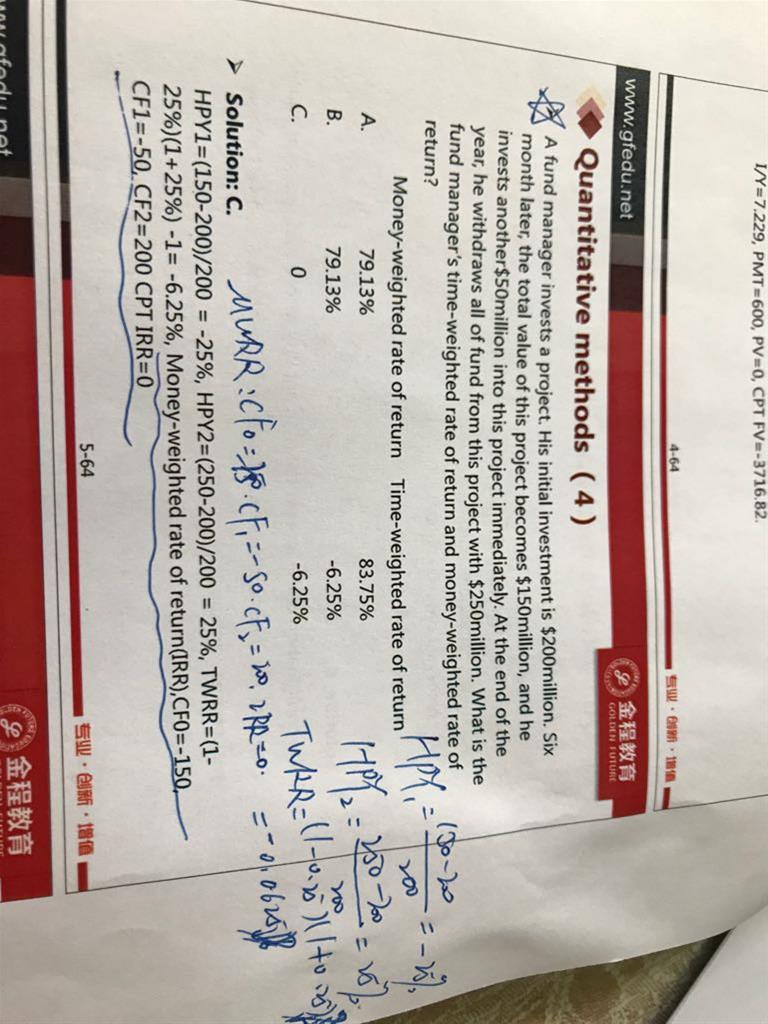 I/Y=7.229, PMT=600, PV=0, CPT FV=-3716.82.
4-64
专业·创新·增值
www.gfedu.net
金程教育
GOLDEN FUTURE
Quantitative methods（4）
A fund manager invests a project. His initial investment is $200million. Six
month later, the total value of this project becomes $150million, and he
invests another$50million into this project immediately. At the end of the
year, he withdraws all of fund from this project with $250million. What is the
fund manager's time-weighted rate of return and money-weighted rate of
return?
Money-weighted rate of return Time-weighted rate of return
A. 79.13% 83.75%
B. 79.13% -6.25%
C. 0 -6.25%
HPY1 = 150-200/200 = -25%
HPY2 = 250-200/200 = 25%
TWRR = (1-0.25)(1+0.25)
= -0.0625
Solution: C.
MWRR: CF0= CF1=-50. CF2= IRR=0.
HPY1=(150-200)/200 = -25%, HPY2=(250-200)/200 = 25%, TWRR=(1-
25%)(1+25%) -1= -6.25%, Money-weighted rate of return(IRR),CF0=-150,
CF1=-50, CF2=200 CPT IRR=0
5-64
专业·创新·增值
www.gfedu.net
金程教育
GOLDEN FUTURE